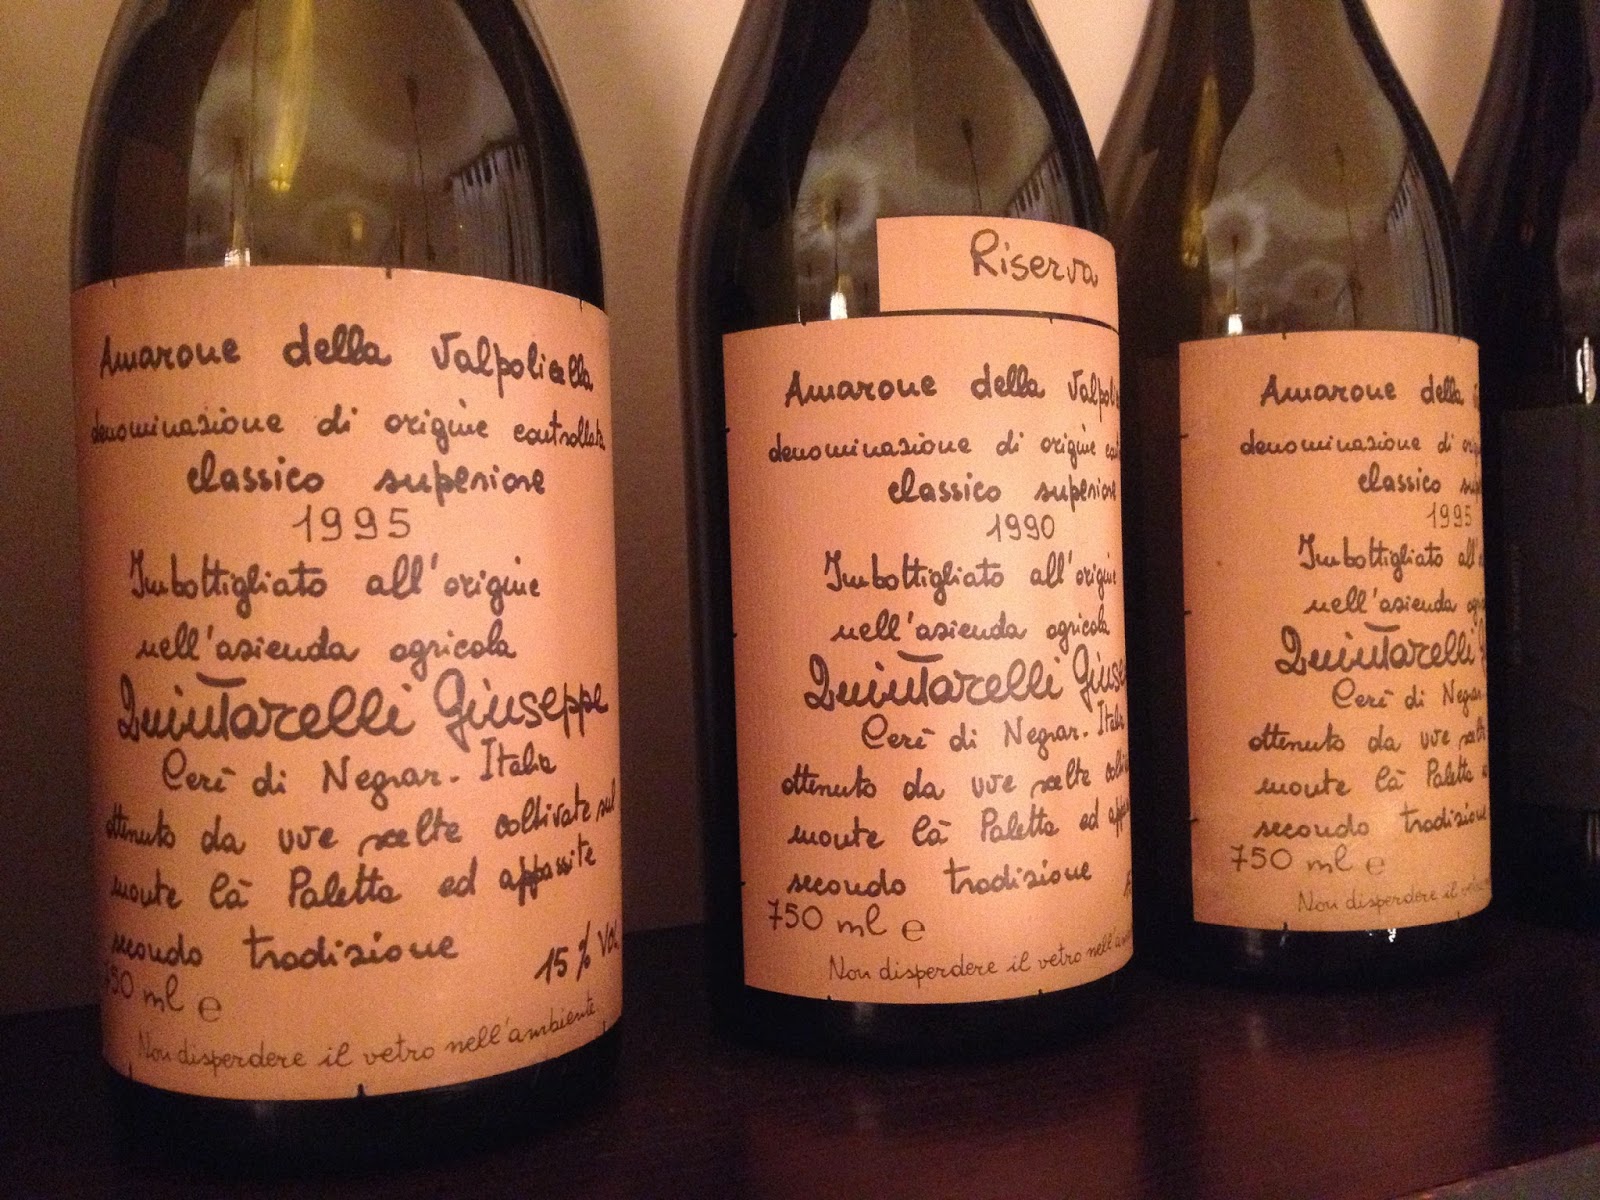 Amarone della Valpolicella
denominazione di origine controllata
classico superiore
1995
Imbottigliato all'origine
nell'azienda agricola
Quintarelli Giuseppe
Cerè di Negrar - Italia
ottenuto da uve scelte coltivate sul
monte Cà Paletta ed appassite
secondo tradizione
15% vol.
750 ml e
Non disperdere il vetro nell'ambiente
Riserva
Amarone della Valpol
denominazione di origine con
classico superiore
1990
Imbottigliato all'origine
nell'azienda agricola
Quintarelli Giuse
Cerè di Negrar - Italia
ottenuto da uve scelte colti
monte Cà Paletta ed app
secondo tradizione
750 ml e
Non disperdere il vetro nell'am
Amarone della
denominazione di orig
classico su
1995
Imbottigliato all'
nell'azienda ag
Quintarelli G
Cerè di Negrar
ottenuto da uve scelt
monte Cà Paletta e
secondo tradizione
750 ml e
Non disperdere il vetr